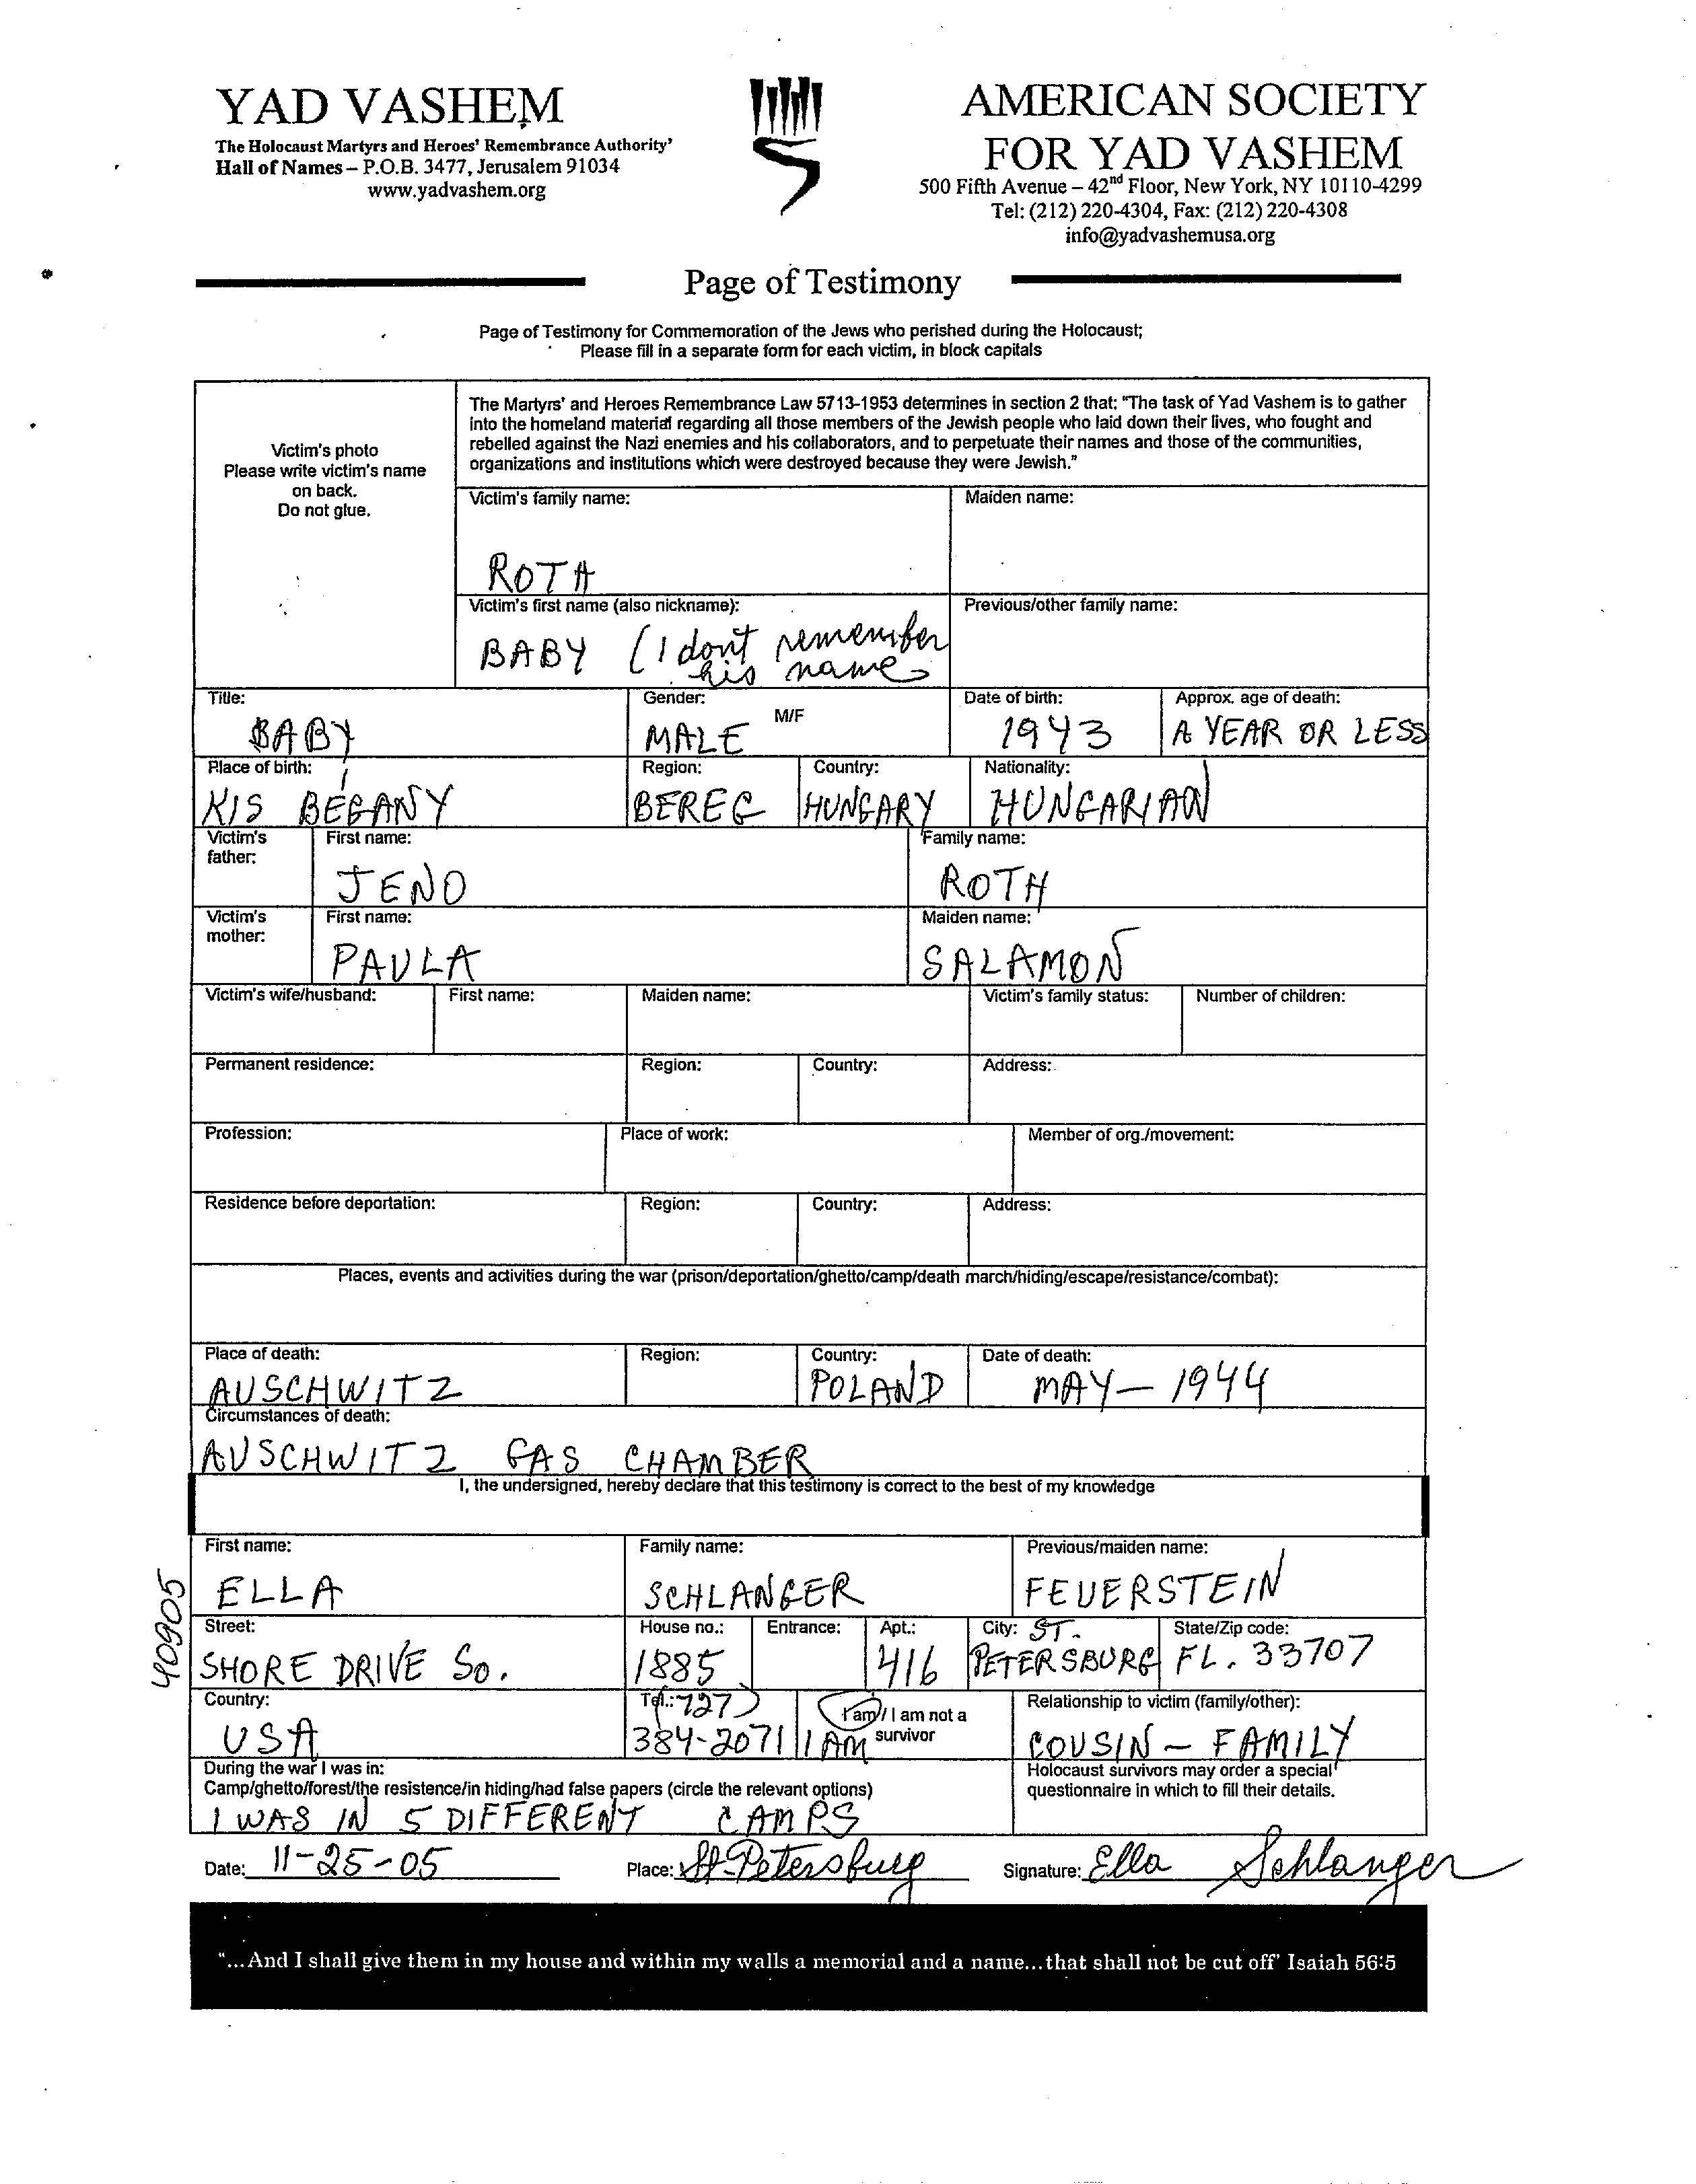 YAD VASHEM
The Holocaust Martyrs and Heroes' Remembrance Authority'
Hall of Names – P.O.B. 3477, Jerusalem 91034
www.yadvashem.org
AMERICAN SOCIETY
FOR YAD VASHEM
500 Fifth Avenue – 42nd Floor, New York, NY 10110-4299
Tel: (212) 220-4304, Fax: (212) 220-4308
info@yadvashemusa.org
Page of Testimony
Page of Testimony for Commemoration of the Jews who perished during the Holocaust;
Please fill in a separate form for each victim, in block capitals
Victim's photo
Please write victim's name
on back.
Do not glue.
The Martyrs' and Heroes Remembrance Law 5713-1953 determines in section 2 that: "The task of Yad Vashem is to gather
into the homeland material regarding all those members of the Jewish people who laid down their lives, who fought and
rebelled against the Nazi enemies and his collaborators, and to perpetuate their names and those of the communities,
organizations and institutions which were destroyed because they were Jewish."
Victim's family name: Maiden name:
ROTH
Victim's first name (also nickname): Previous/other family name:
BABY (I dont remember
his name
Title: Gender: M/F Date of birth: Approx. age of death:
BABY MALE 1943 A YEAR OR LESS
Place of birth: Region: Country: Nationality:
KIS BÉGANY BEREG HUNGARY HUNGARIAN
Victim's father: First name: Family name:
JENO ROTH
Victim's mother: First name: Maiden name:
PAULA SALAMON
Victim's wife/husband: First name: Maiden name: Victim's family status: Number of children:
Permanent residence: Region: Country: Address:
Profession: Place of work: Member of org./movement:
Residence before deportation: Region: Country: Address:
Places, events and activities during the war (prison/deportation/ghetto/camp/death march/hiding/escape/resistance/combat):
Place of death: Region: Country: Date of death:
AUSCHWITZ POLAND MAY – 1944
Circumstances of death:
AUSCHWITZ GAS CHAMBER
I, the undersigned, hereby declare that this testimony is correct to the best of my knowledge
First name: Family name: Previous/maiden name:
ELLA SCHLANGER FEUERSTEIN
40905
Street: House no.: Entrance: Apt.: City: ST. State/Zip code:
SHORE DRIVE So. 1885 416 PETERSBURG FL. 33707
Country: Tel.: 727) I am / I am not a Relationship to victim (family/other):
USA 384-2071 I AM survivor COUSIN – FAMILY
During the war I was in: Holocaust survivors may order a special
Camp/ghetto/forest/the resistence/in hiding/had false papers (circle the relevant options) questionnaire in which to fill their details.
I WAS IN 5 DIFFERENT CAMPS
Date: 11-25-05 Place: St-Petersburg Signature: Ella Schlanger
"...And I shall give them in my house and within my walls a memorial and a name...that shall not be cut off' Isaiah 56:5